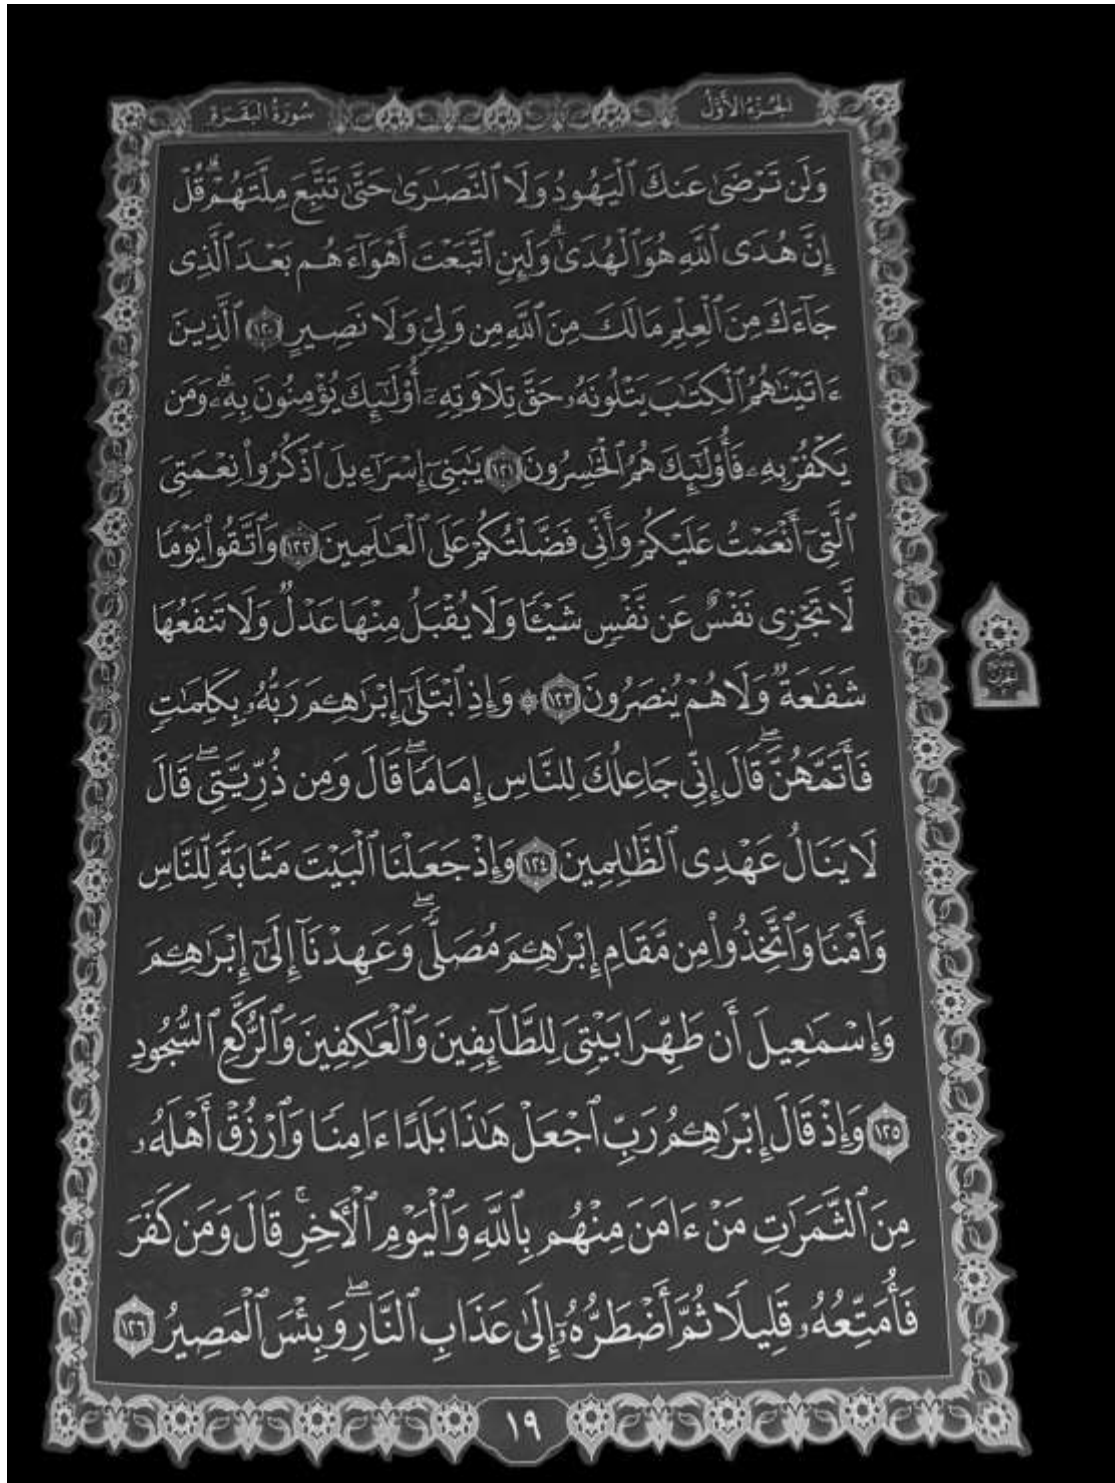 الجُزْءُ الأَوَّلُ
سُورَةُ البَقَرَةِ
وَلَن تَرْضَىٰ عَنكَ ٱلْيَهُودُ وَلَا ٱلنَّصَـٰرَىٰ حَتَّىٰ تَتَّبِعَ مِلَّتَهُمْ ۗ قُلْ
إِنَّ هُدَى ٱللَّهِ هُوَ ٱلْهُدَىٰ ۗ وَلَئِنِ ٱتَّبَعْتَ أَهْوَآءَهُم بَعْدَ ٱلَّذِى
جَآءَكَ مِنَ ٱلْعِلْمِ مَا لَكَ مِنَ ٱللَّهِ مِن وَلِىٍّ وَلَا نَصِيرٍ ١٢٠ ٱلَّذِينَ
ءَاتَيْنَـٰهُمُ ٱلْكِتَـٰبَ يَتْلُونَهُۥ حَقَّ تِلَاوَتِهِۦٓ أُو۟لَـٰٓئِكَ يُؤْمِنُونَ بِهِۦ ۗ وَمَن
يَكْفُرْ بِهِۦ فَأُو۟لَـٰٓئِكَ هُمُ ٱلْخَـٰسِرُونَ ١٢١ يَـٰبَنِىٓ إِسْرَٰٓءِيلَ ٱذْكُرُوا۟ نِعْمَتِىَ
ٱلَّتِىٓ أَنْعَمْتُ عَلَيْكُمْ وَأَنِّى فَضَّلْتُكُمْ عَلَى ٱلْعَـٰلَمِينَ ١٢٢ وَٱتَّقُوا۟ يَوْمًا
لَّا تَجْزِى نَفْسٌ عَن نَّفْسٍ شَيْـًٔا وَلَا يُقْبَلُ مِنْهَا عَدْلٌ وَلَا تَنفَعُهَا
شَفَـٰعَةٌ وَلَا هُمْ يُنصَرُونَ ١٢٣ ۞ وَإِذِ ٱبْتَلَىٰٓ إِبْرَٰهِـۧمَ رَبُّهُۥ بِكَلِمَـٰتٍ
فَأَتَمَّهُنَّ ۖ قَالَ إِنِّى جَاعِلُكَ لِلنَّاسِ إِمَامًا ۖ قَالَ وَمِن ذُرِّيَّتِى ۖ قَالَ
لَا يَنَالُ عَهْدِى ٱلظَّـٰلِمِينَ ١٢٤ وَإِذْ جَعَلْنَا ٱلْبَيْتَ مَثَابَةً لِّلنَّاسِ
وَأَمْنًا وَٱتَّخِذُوا۟ مِن مَّقَامِ إِبْرَٰهِـۧمَ مُصَلًّى ۖ وَعَهِدْنَآ إِلَىٰٓ إِبْرَٰهِـۧمَ
وَإِسْمَـٰعِيلَ أَن طَهِّرَا بَيْتِىَ لِلطَّآئِفِينَ وَٱلْعَـٰكِفِينَ وَٱلرُّكَّعِ ٱلسُّجُودِ
١٢٥ وَإِذْ قَالَ إِبْرَٰهِـۧمُ رَبِّ ٱجْعَلْ هَـٰذَا بَلَدًا ءَامِنًا وَٱرْزُقْ أَهْلَهُۥ
مِنَ ٱلثَّمَرَٰتِ مَنْ ءَامَنَ مِنْهُم بِٱللَّهِ وَٱلْيَوْمِ ٱلْـَٔاخِرِ ۚ قَالَ وَمَن كَفَرَ
فَأُمَتِّعُهُۥ قَلِيلًا ثُمَّ أَضْطَرُّهُۥٓ إِلَىٰ عَذَابِ ٱلنَّارِ ۖ وَبِئْسَ ٱلْمَصِيرُ ١٢٦
١٩